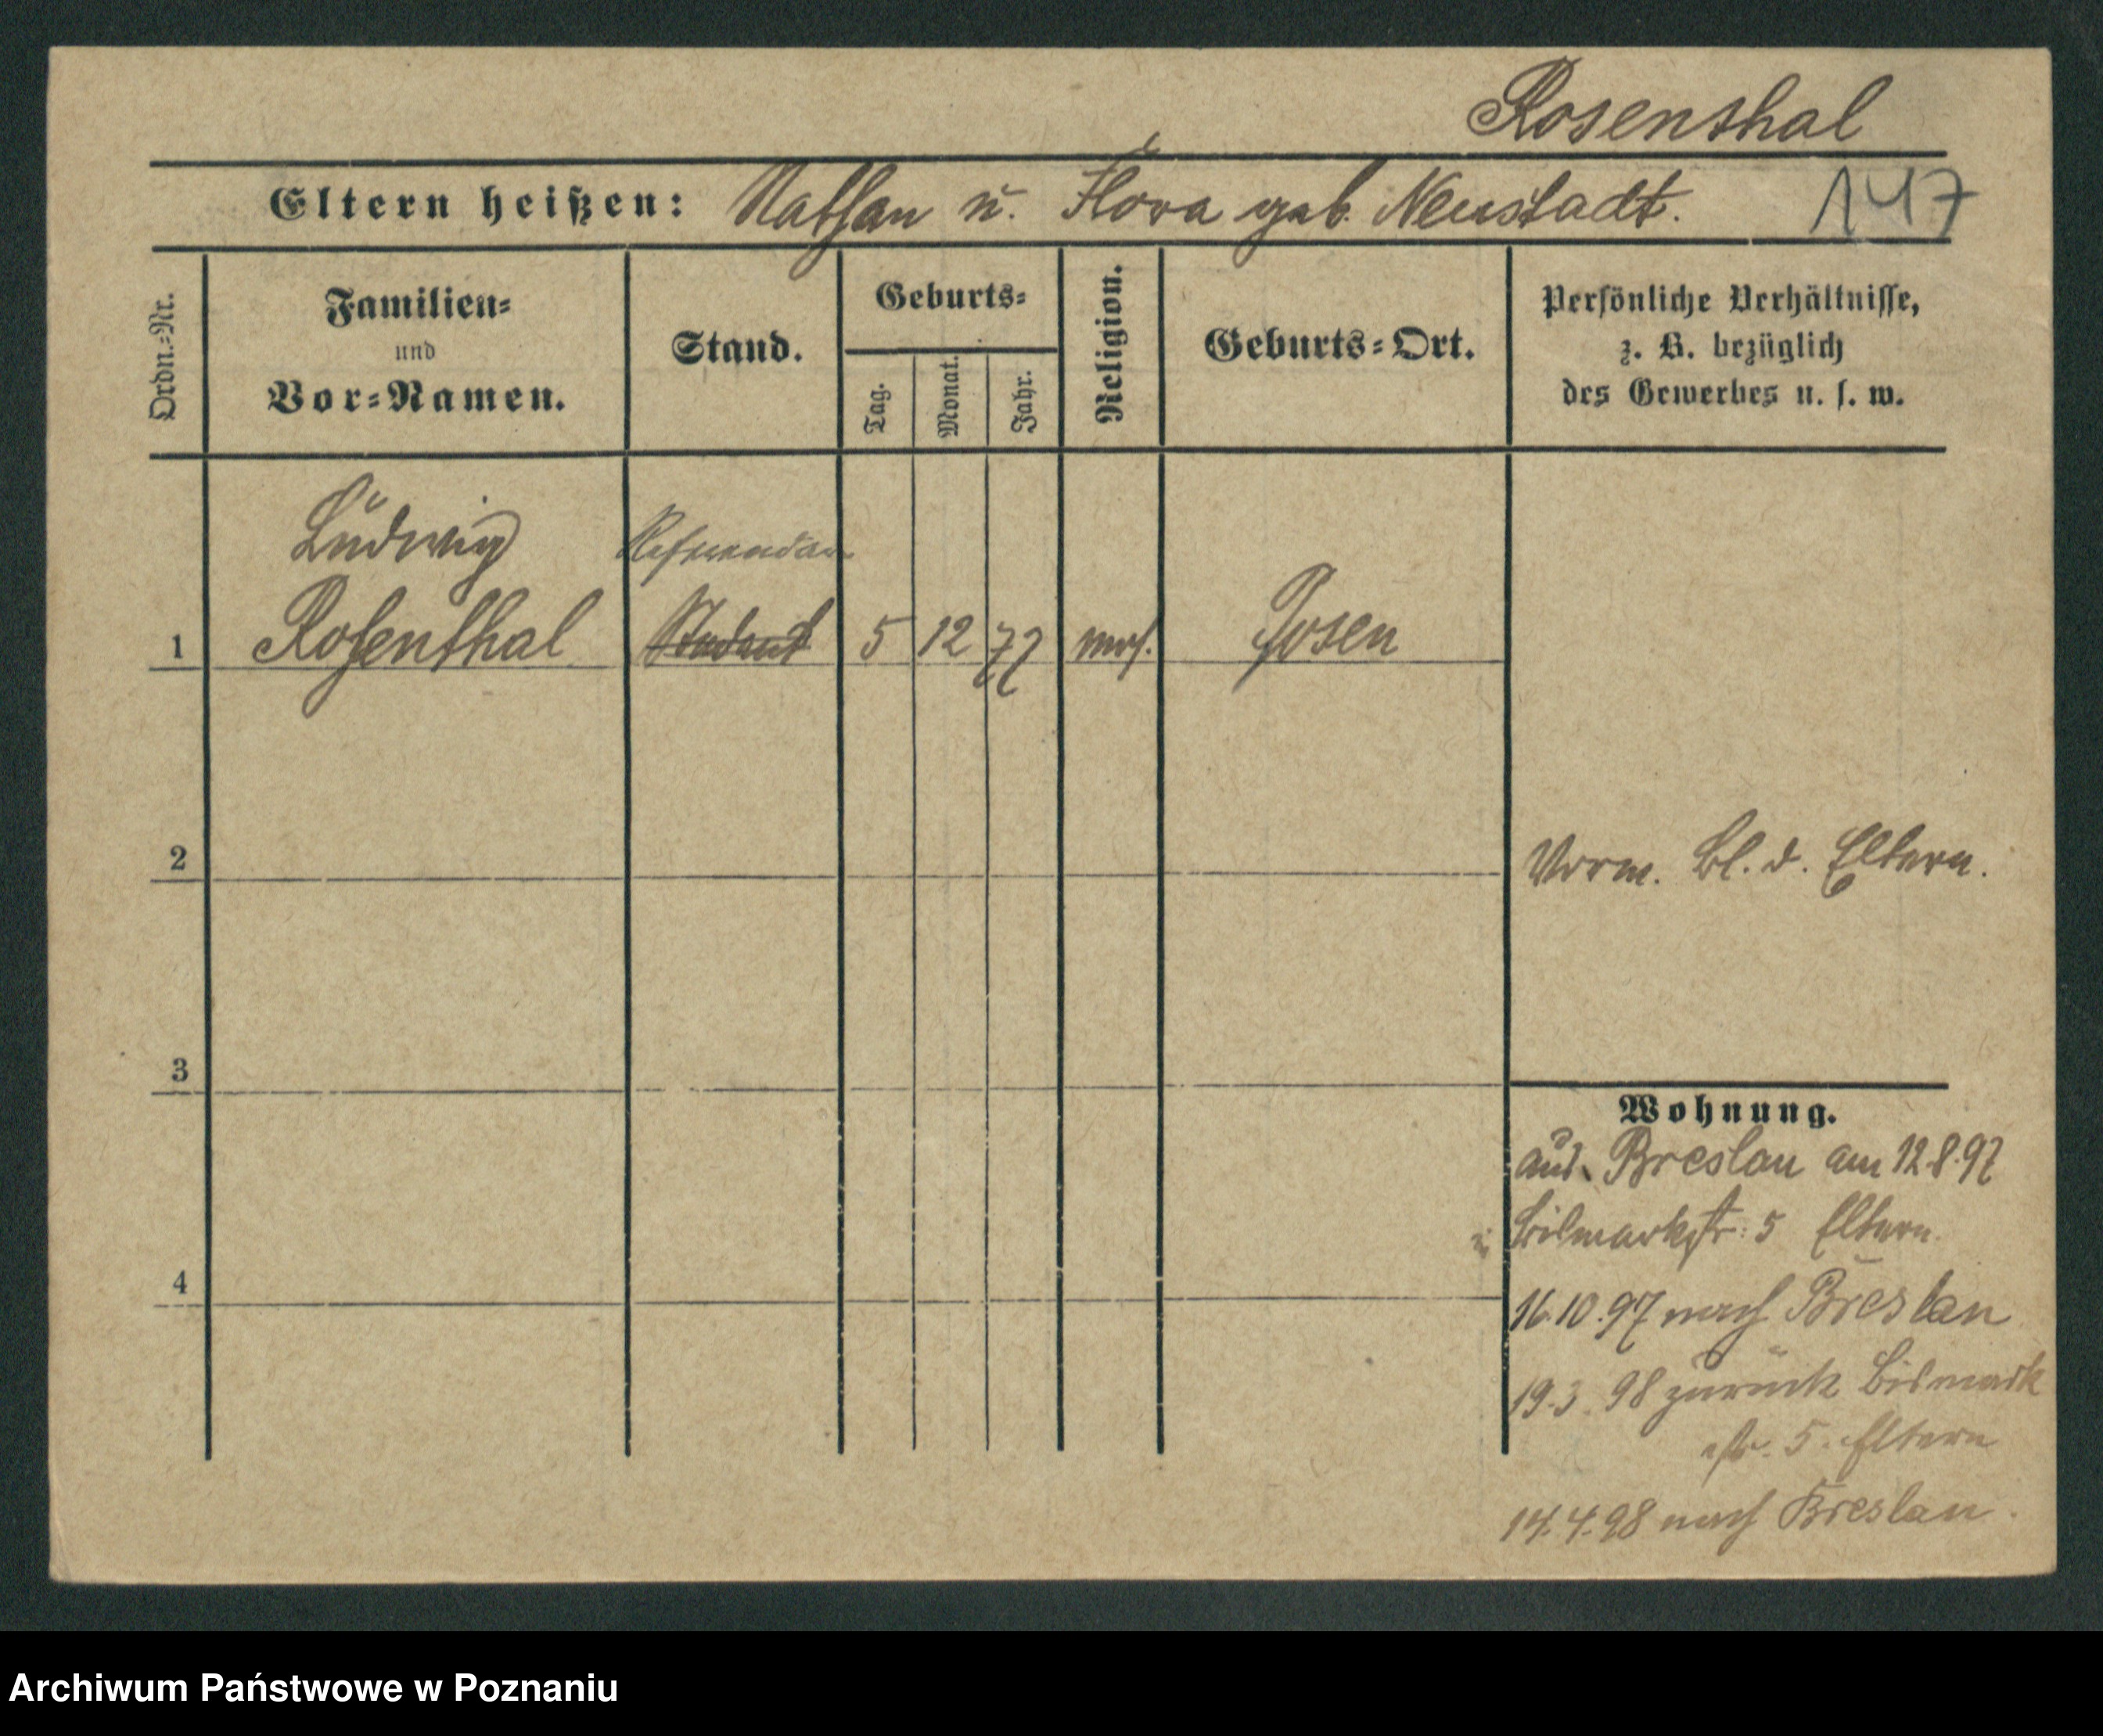 Rosenthal
Eltern heißen: Nathan u. Flora geb. Neustadt. 147
Ordn.-Nr.
Familien-
und
Vor-Namen.
Stand.
Geburts-
Tag.
Monat.
Jahr.
Religion.
Geburts-Ort.
Persönliche Verhältnisse,
z. B. bezüglich
des Gewerbes u. s. w.
Ludwig Referendar
1 Rosenthal Student 5 12 77 mos. Posen
2 Vorm. Bl. d. Eltern.
3
Wohnung.
aus Breslau am 12.8.97
Bismarkstr. 5 Eltern
4
16.10.97 nach Breslau
19.3.98 zurück Bismark
str. 5. Eltern
14.4.98 nach Breslau.
Archiwum Państwowe w Poznaniu